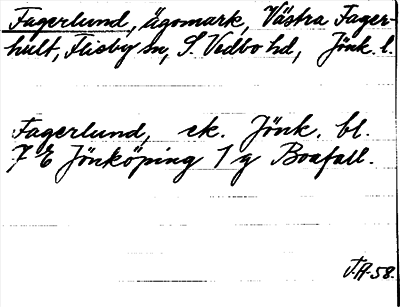 Fagerlund, ägomark, Västra Fager-
hult, Flisby sn, S. Vedbo hd, Jönk. l.
Fagerlund, ek. Jönk. bl.
7 E Jönköping 1 g Boafall.
J.A-58.